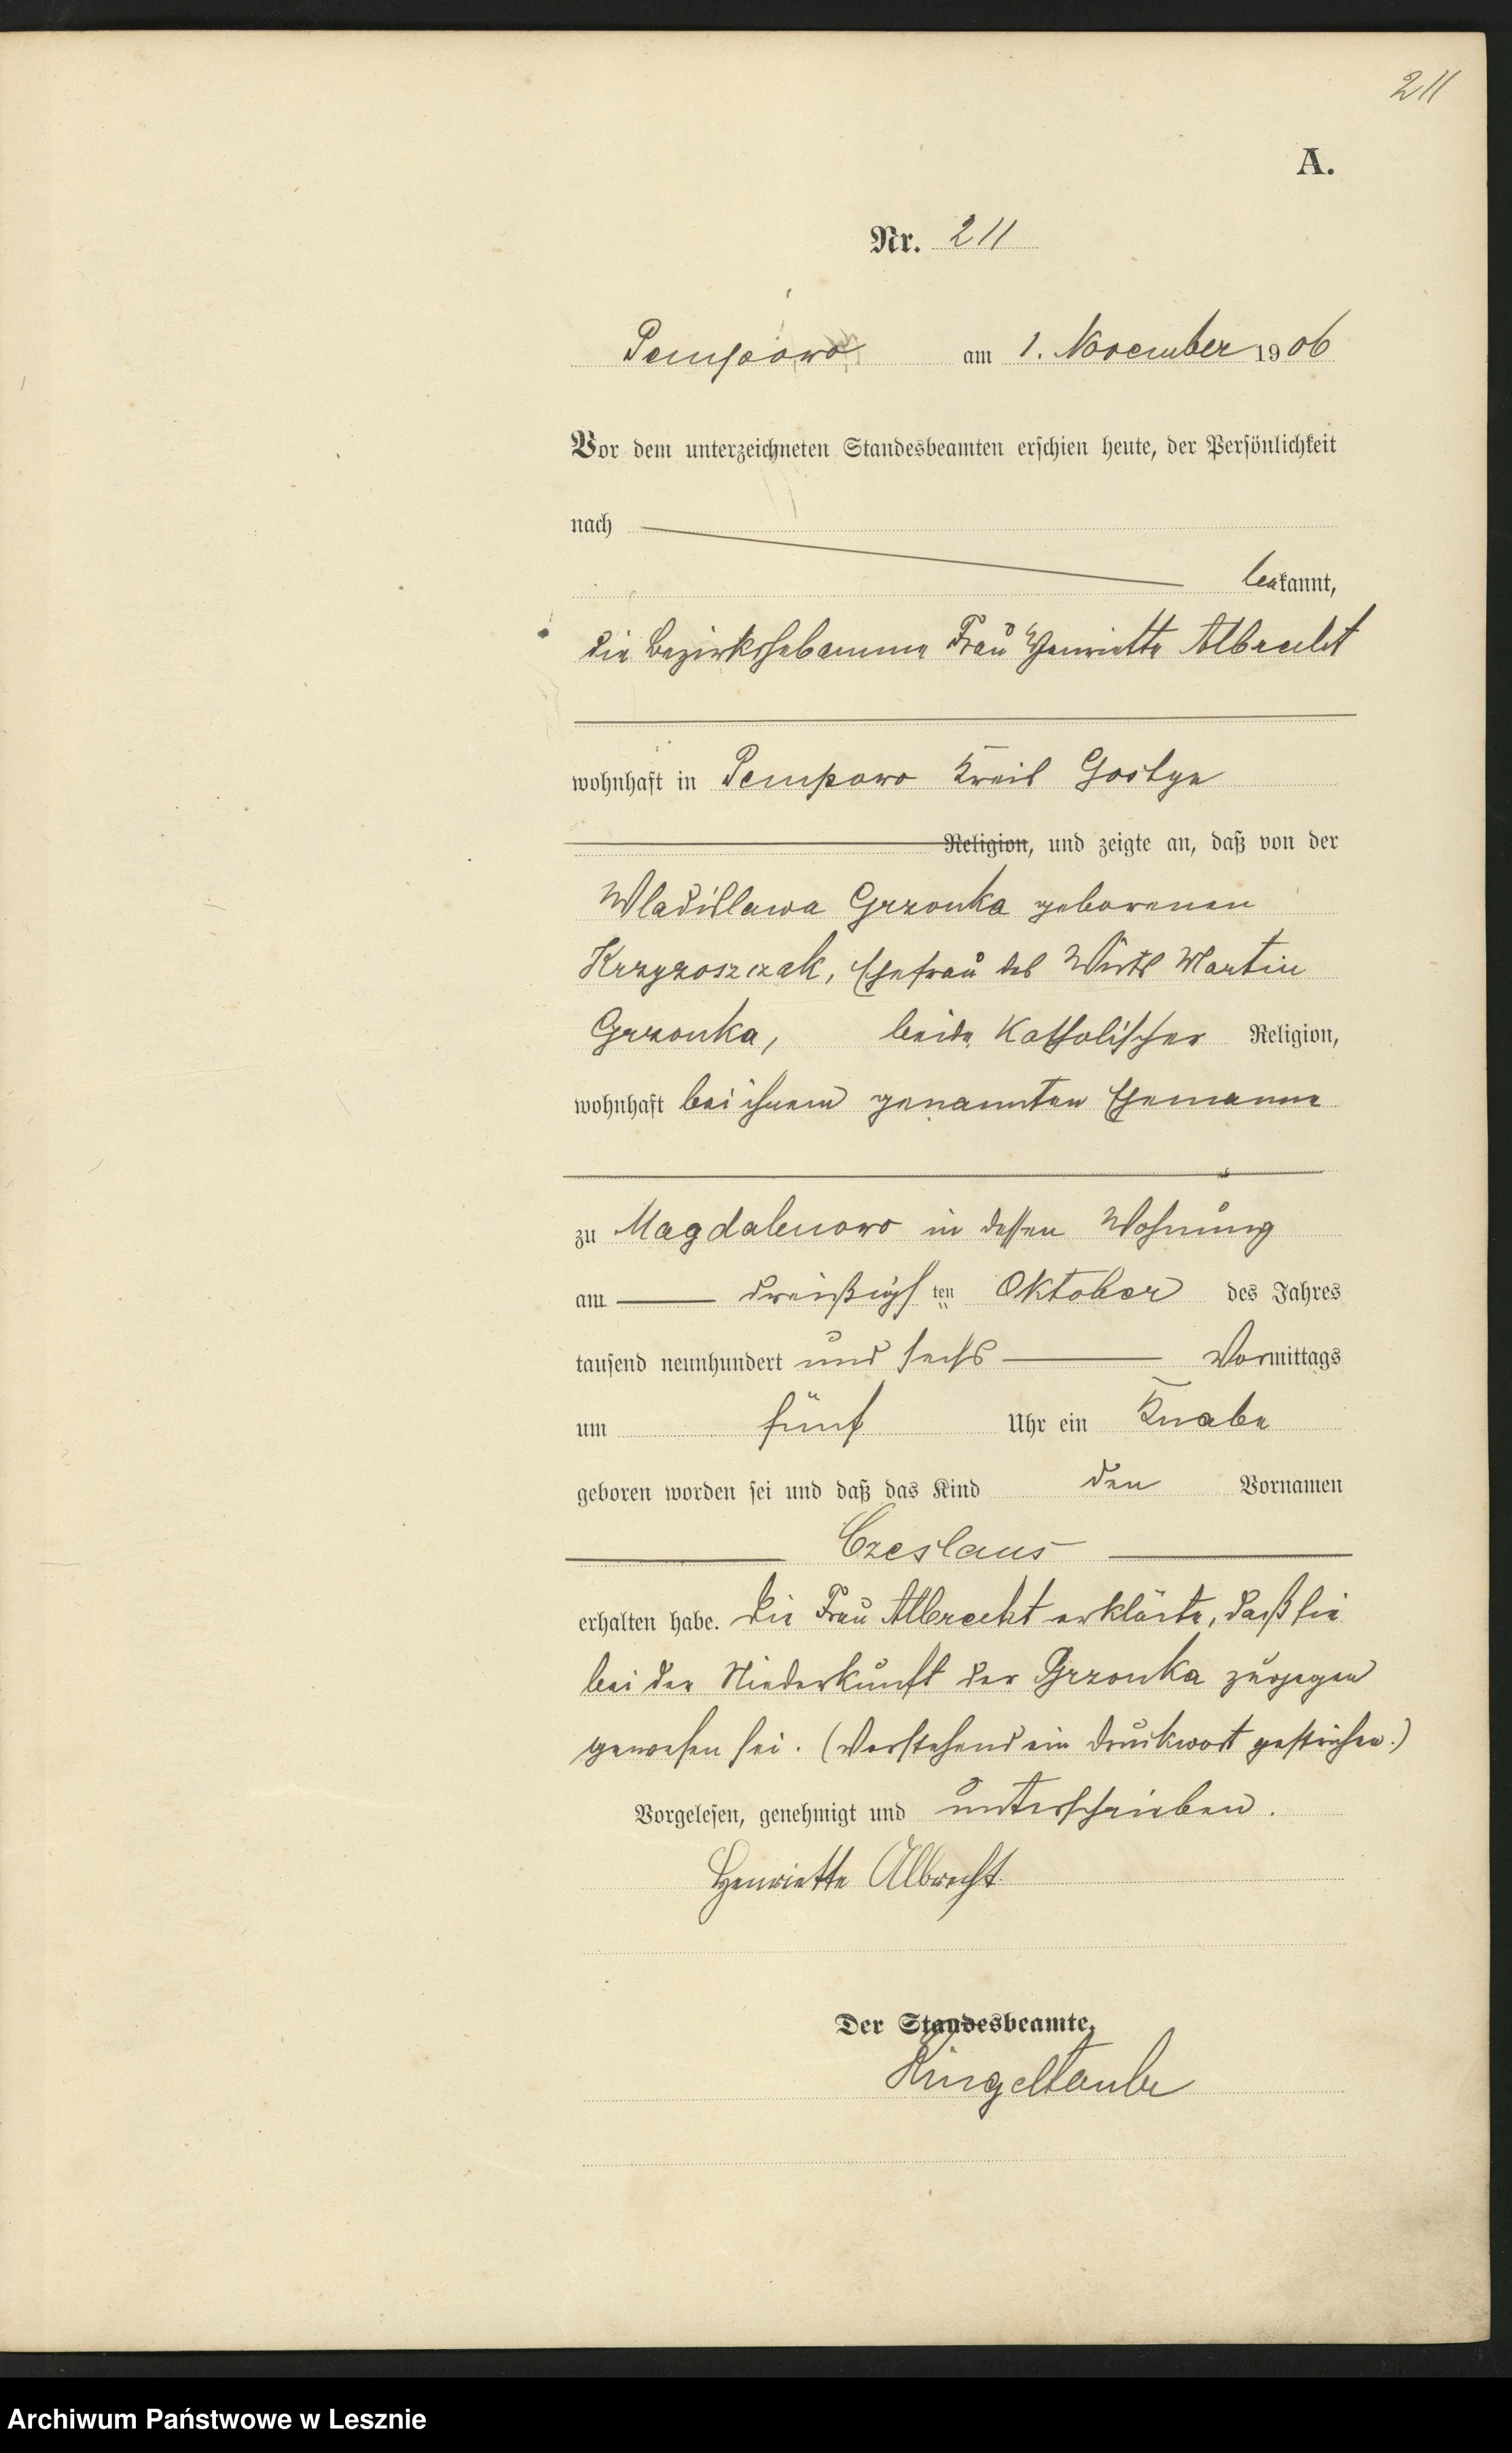 211
A.
Nr. 211
Pempowo am 1. November 1906
Vor dem unterzeichneten Standesbeamten erschien heute, der Persönlichkeit
nach
bekannt,
die Bezirkshebamme Frau Henriette Albrecht
wohnhaft in Pempowo Kreis Gostyn
Religion, und zeigte an, daß von der
Wladislawa Grzonka geborenen
Krzyzoszczak, Ehefrau des Wirts Martin
Grzonka, beide katholischer Religion,
wohnhaft bei ihrem genannten Ehemanne
zu Magdalenowo in dessen Wohnung
am dreißigsten Oktober des Jahres
tausend neunhundert und sechs Vormittags
um fünf Uhr ein Knabe
geboren worden sei und daß das Kind den Vornamen
Czeslaus
erhalten habe. Die Frau Albrecht erklärte, daß sie
bei der Niederkunft der Grzonka zugegen
gewesen sei. (Vorstehend ein Druckwort gestrichen.)
Vorgelesen, genehmigt und unterschrieben.
Henriette Albrecht
Der Standesbeamte,
Ringeltaube
Archiwum Państwowe w Lesznie